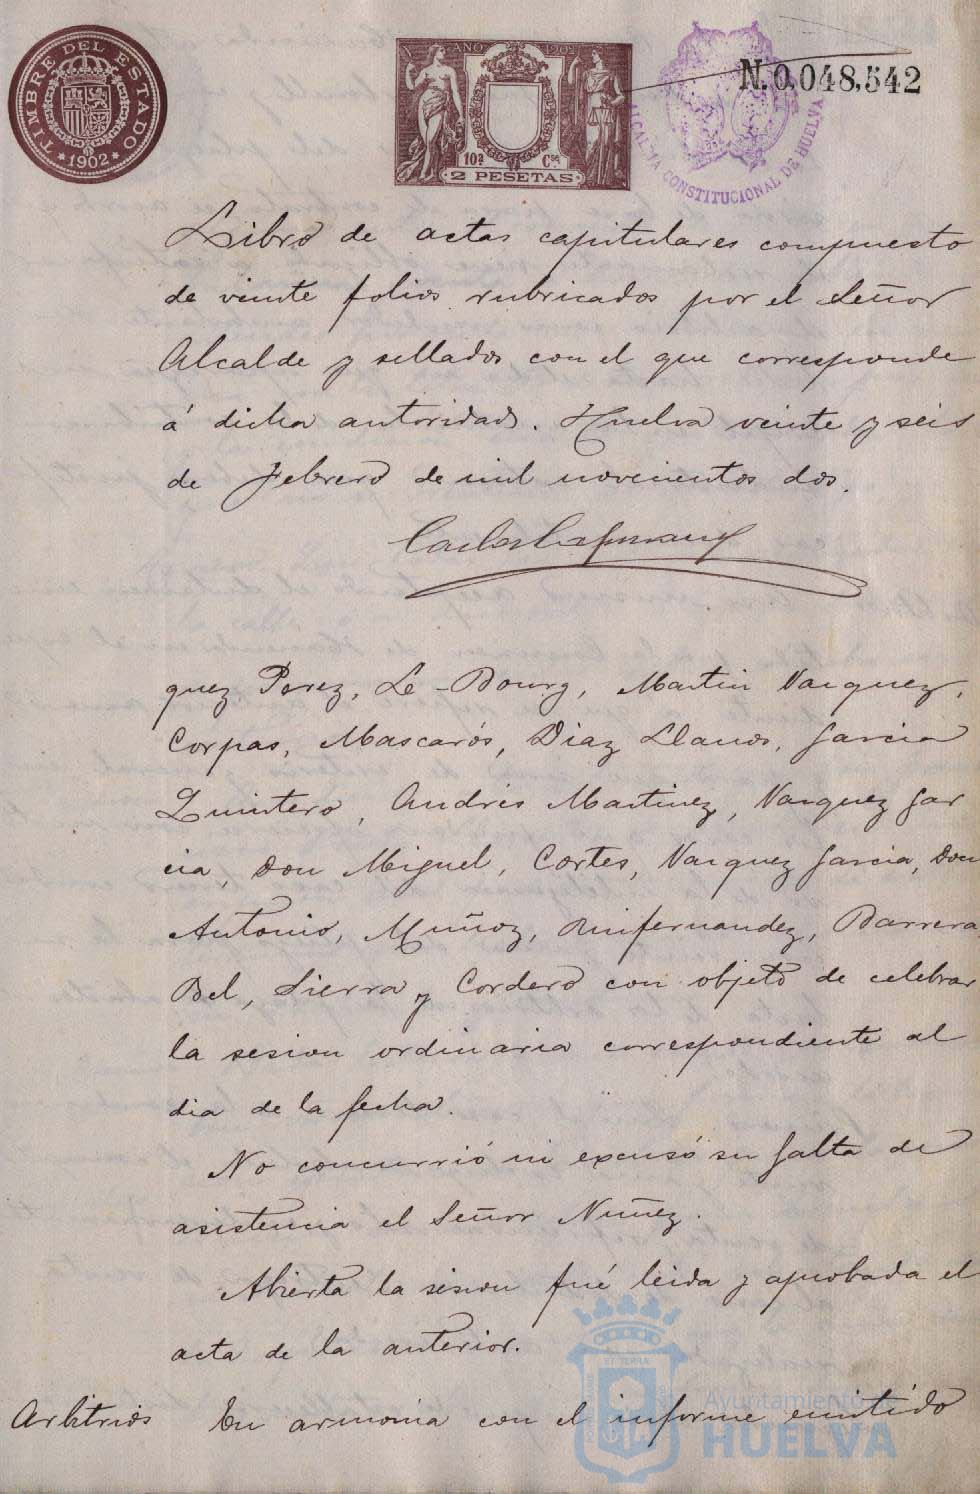 TIMBRE DEL ESTADO
*1902*
AÑO 1902
10ª Cse
2 PESETAS
N.0,048,542
ALCALDIA CONSTITUCIONAL DE HUELVA
Libro de actas capitulares compuesto
de veinte folios rubricados por el Señor
Alcalde y sellados con el que corresponde
á dicha autoridad. Huelva veinte y seis
de Febrero de mil novecientos dos.
Carlos
quez Perez, Le-Bourg, Martin Vazquez,
Corpas, Mascarós, Diaz Llanos, Garcia
Quintero, Andrés Martinez, Vazquez Gar
cia, Don Miguel, Cortes, Vazquez Garcia, Don
Antonio, Muñoz, Rinfernandez, Barrera
Bel, Sierra y Cordero con objeto de celebrar
la sesion ordinaria correspondiente al
dia de la fecha.
No concurrió ni excusó su falta de
asistencia el Señor Nuñez.
Abierta la sesion fué leida y aprobada el
acta de la anterior.
Arbitrios En armonia con el informe emitido
Ayuntamiento de
HUELVA